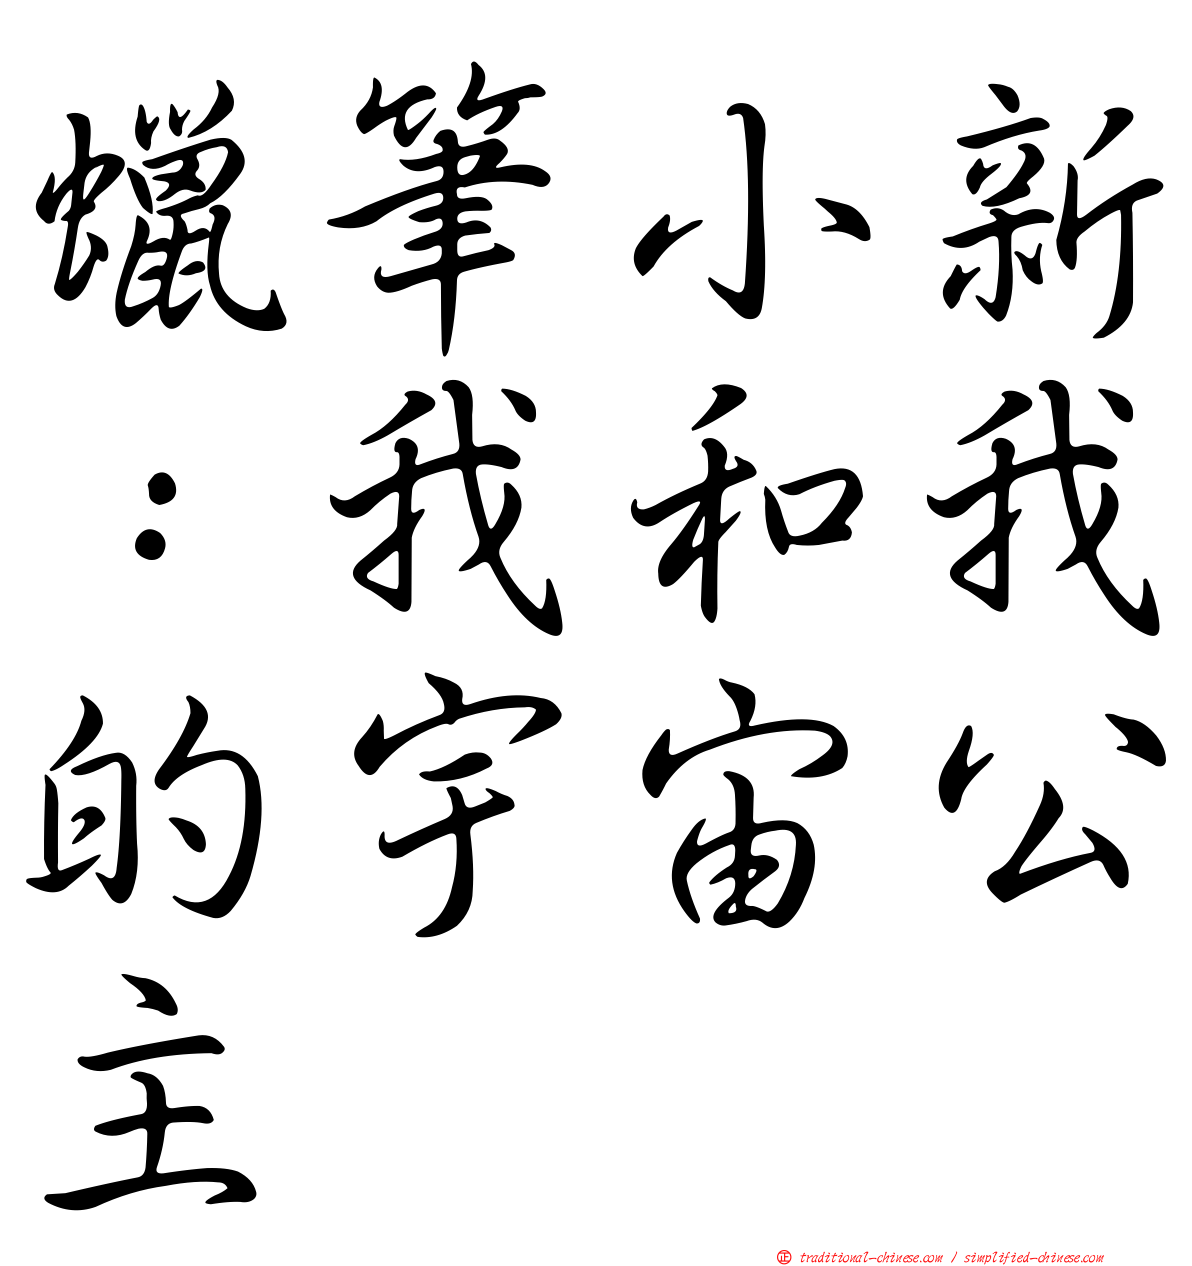 蠟筆小新
：我和我
的宇宙公
主
正 traditional-chinese.com / simplified-chinese.com